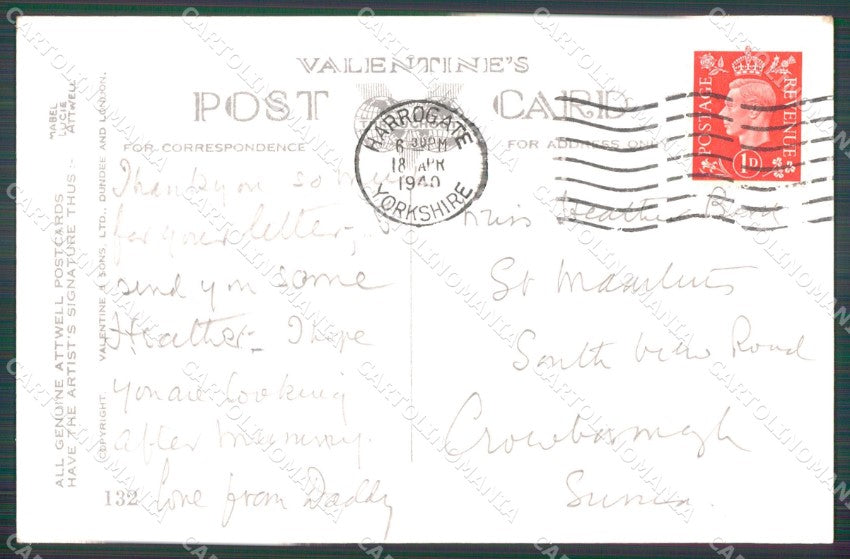 VALENTINE'S
POST CARD
FOR CORRESPONDENCE
FOR ADDRESS ONLY
MABEL
LUCIE
ATTWELL
ALL GENUINE ATTWELL POSTCARDS
HAVE THE ARTIST'S SIGNATURE THUS :-
COPYRIGHT. VALENTINE & SONS, LTD., DUNDEE AND LONDON.
HARROGATE
6 30PM
18 APR
1940
YORKSHIRE
POSTAGE
REVENUE
1D
Thank you so much
for your letter, I
send you some
Heather - I hope
you are looking
after Mummy.
132
Love from Daddy
Miss Heather
St
South View Road
Crowborough
Sussex
CARTOLINOMANIA